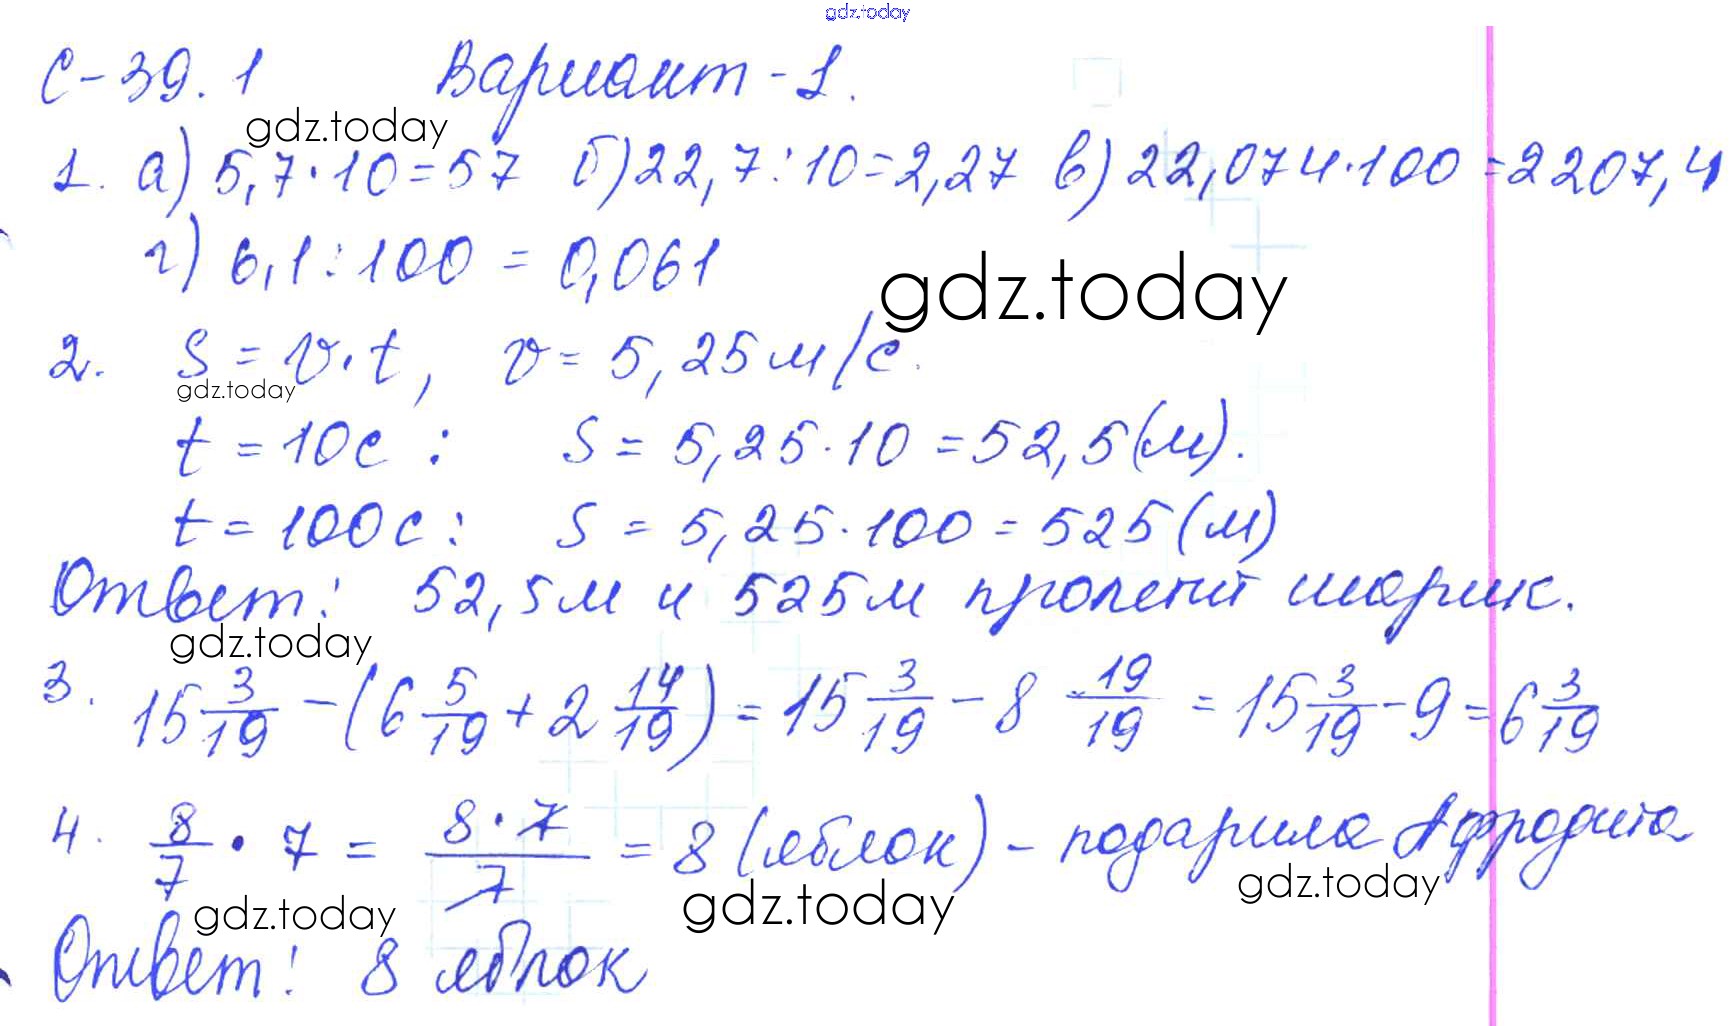 gdz.today
С-39.1 Вариант-1.
gdz.today
1. а) 5,7·10=57 б) 22,7:10=2,27 в) 22,074·100=2207,4
г) 6,1:100=0,061
gdz.today
2. S=v·t, v=5,25м/с.
gdz.today
t=10с: S=5,25·10=52,5(м).
t=100с: S=5,25·100=525(м)
Ответ: 52,5м и 525м пролетит шарик.
gdz.today
3. 15 3/19 - (6 5/19 + 2 14/19) = 15 3/19 - 8 19/19 = 15 3/19 - 9 = 6 3/19
4. 8/7 · 7 = 8·7/7 = 8 (яблок) - подарила Афродита
gdz.today gdz.today gdz.today
Ответ: 8 яблок